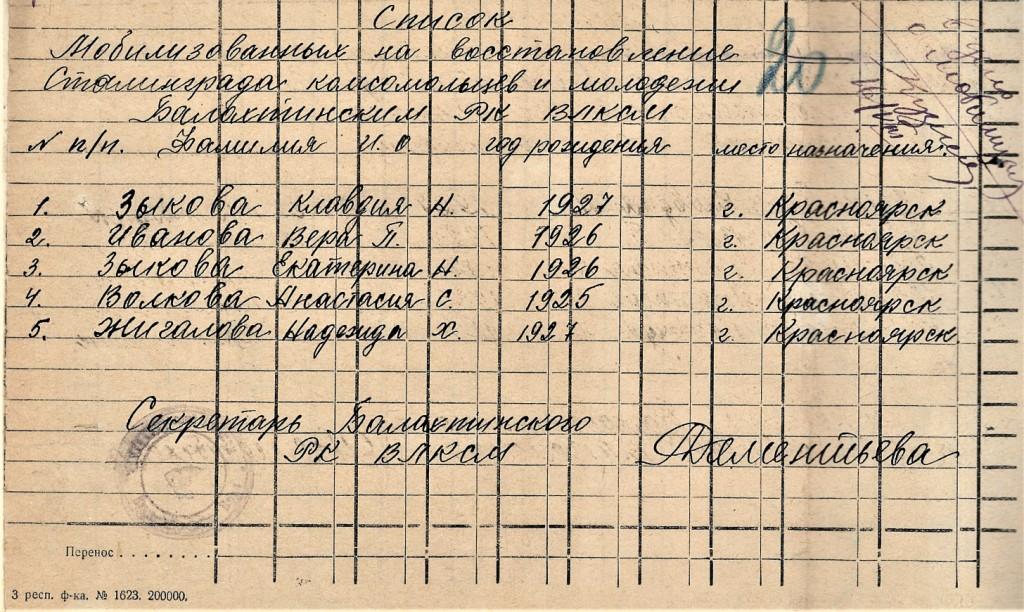 Список
Мобилизованных на восстановление
Сталинграда комсомольцев и молодежи
Балахтинским РК ВЛКСМ
20
N п/п. Фамилия И.О год рождения место назначения.
1. Зыкова Клавдия Н. 1927 г. Красноярск
2. Иванова Вера П. 1926 г. Красноярск
3. Зыкова Екатерина Н. 1926 г. Красноярск
4. Волкова Анастасия С. 1925 г. Красноярск
5. Жигалова Надежда Х. 1927 г. Красноярск.
Секретарь Балахтинского
РК ВЛКСМ Дементьева
Перенос . . . . . . . .
3 респ. ф-ка. № 1623. 200000.